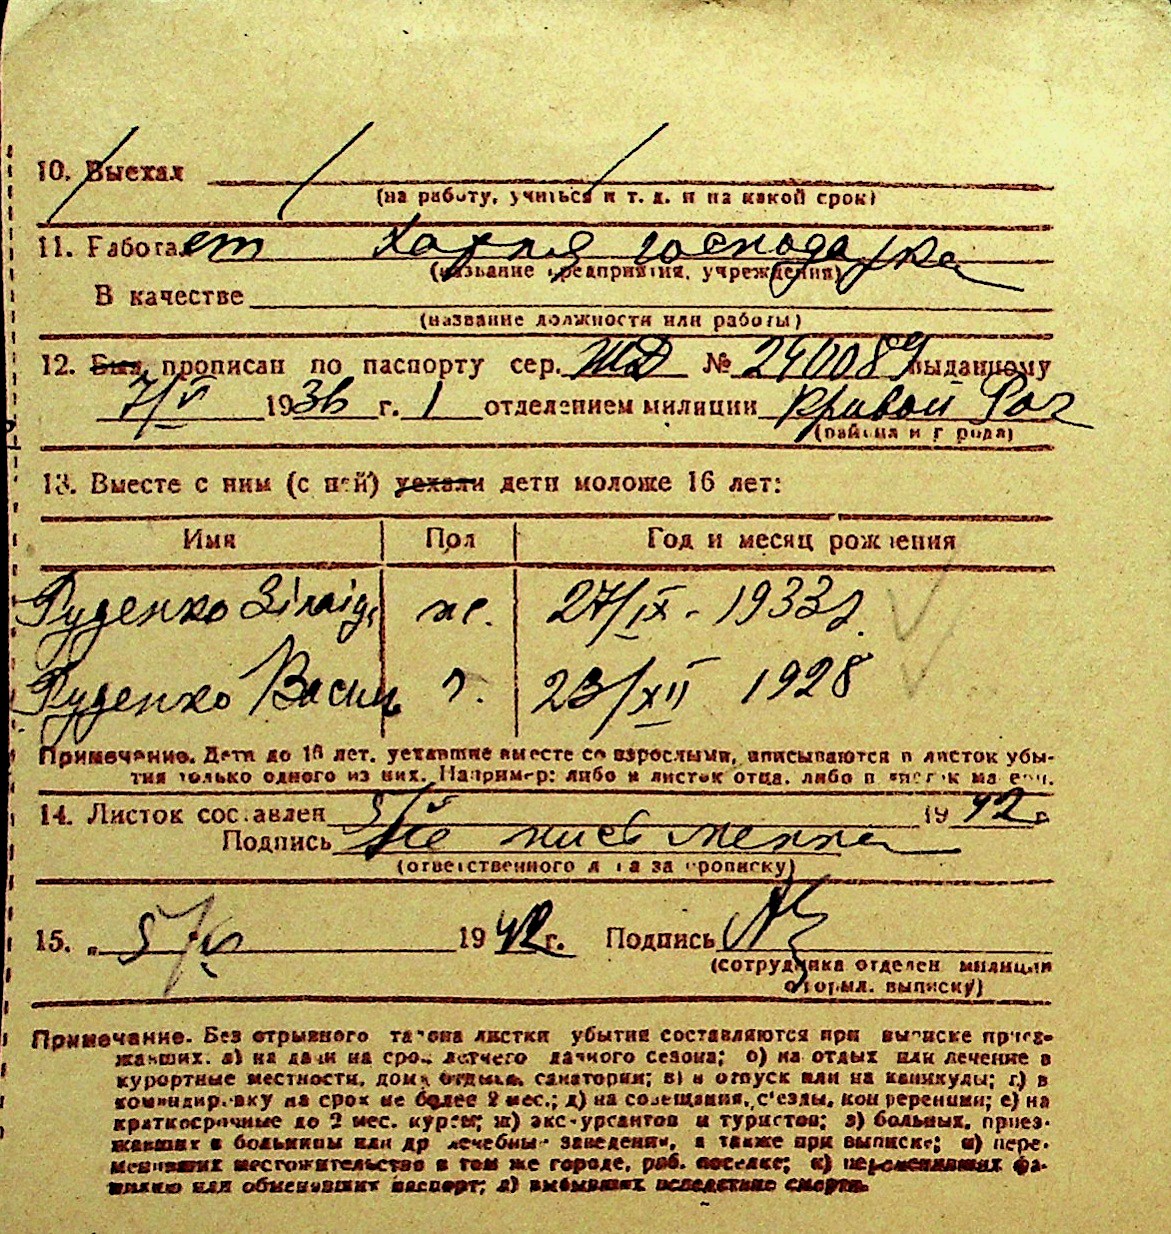 10. Выехал
(на работу, учиться и т. д. и на какой срок)
11. Работает Хатня господарка
(название предприятия, учреждения)
В качестве
(название должности или работы)
12. Был прописан по паспорту сер. ЖД № 240089 выданному
7/V 1936 г. 1 отделением милиции Кривой Рог
(района и города)
13. Вместе с ним (с ней) уехали дети моложе 16 лет:
Имя Пол Год и месяц рождения
Руденко Зінаід. ж. 27/IX - 1933 р.
Руденко Василь ч. 23/XII 1928
Примечание. Дети до 16 лет, уехавшие вместе со взрослыми, вписываются в листок убы-
тия только одного из них. Например: либо в листок отца, либо в листок матери.
14. Листок составлен 5/V 1942 г
Подпись Не письменна
(ответственного лица за прописку)
15. „ 5/V 1942 г. Подпись
(сотрудника отделен. милиции
оформл. выписку)
Примечание. Без отрывного талона листки убытия составляются при выписке приез-
жавших: а) на дачи на срок летнего дачного сезона; б) на отдых или лечение в
курортные местности, дома отдыха, санатории; в) в отпуск или на каникулы; г) в
командировку на срок не более 2 мес.; д) на совещания, с'езды, конференции; е) на
краткосрочные до 2 мес. курсы; ж) экскурсантов и туристов; з) больных, приез-
жавших в больницы или др лечебные заведения, а также при выписке; и) пере-
менивших местожительство в том же городе, раб. поселке; к) переменивших фа-
милию или обменявших паспорт; л) выбывших вследствие смерти.